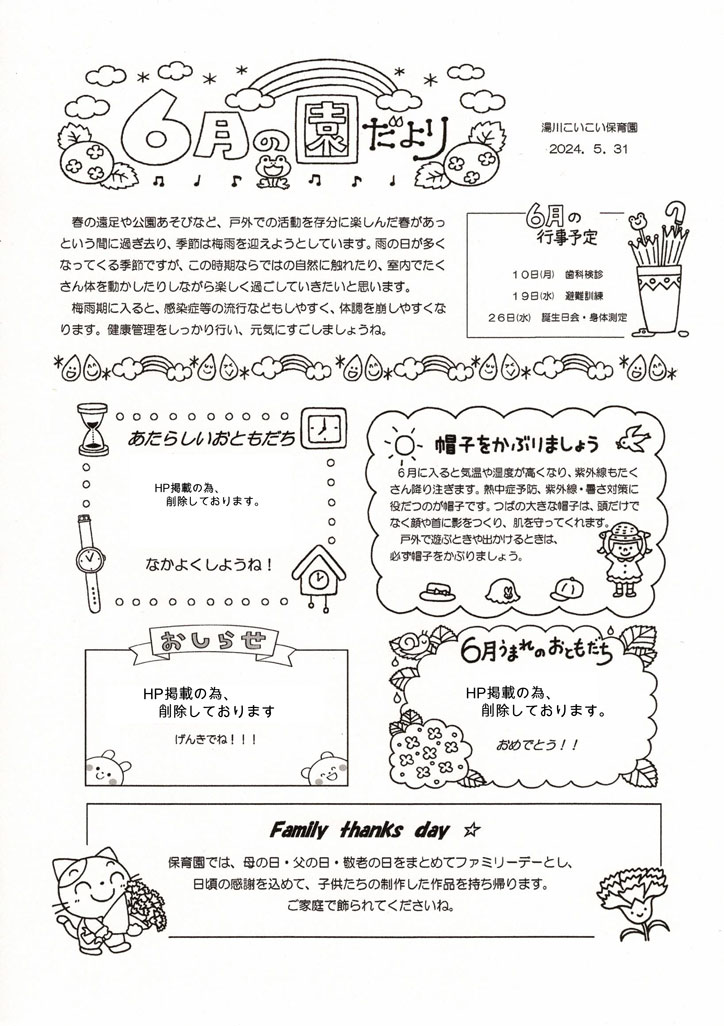 6月の園だより
湯川こいこい保育園
2024．5．31
春の遠足や公園あそびなど、戸外での活動を存分に楽しんだ春があっ
という間に過ぎ去り、季節は梅雨を迎えようとしています。雨の日が多く
なってくる季節ですが、この時期ならではの自然に触れたり、室内でたく
さん体を動かしたりしながら楽しく過ごしていきたいと思います。
梅雨期に入ると、感染症等の流行などもしやすく、体調を崩しやすくな
ります。健康管理をしっかり行い、元気にすごしましょうね。
6月の
行事予定
10日(月)　歯科検診
19日(水)　避難訓練
26日(水)　誕生日会・身体測定
あたらしいおともだち
HP掲載の為、
削除しております。
なかよくしようね！
帽子をかぶりましょう
6月に入ると気温や湿度が高くなり、紫外線もたく
さん降り注ぎます。熱中症予防、紫外線・暑さ対策に
役だつのが帽子です。つばの大きな帽子は、頭だけで
なく顔や首に影をつくり、肌を守ってくれます。
戸外で遊ぶときや出かけるときは、
必ず帽子をかぶりましょう。
おしらせ
HP掲載の為、
削除しております
げんきでね！！！
6月うまれのおともだち
HP掲載の為、
削除しております。
おめでとう！！
Family thanks day ☆
保育園では、母の日・父の日・敬老の日をまとめてファミリーデーとし、
日頃の感謝を込めて、子供たちの制作した作品を持ち帰ります。
ご家庭で飾られてくださいね。